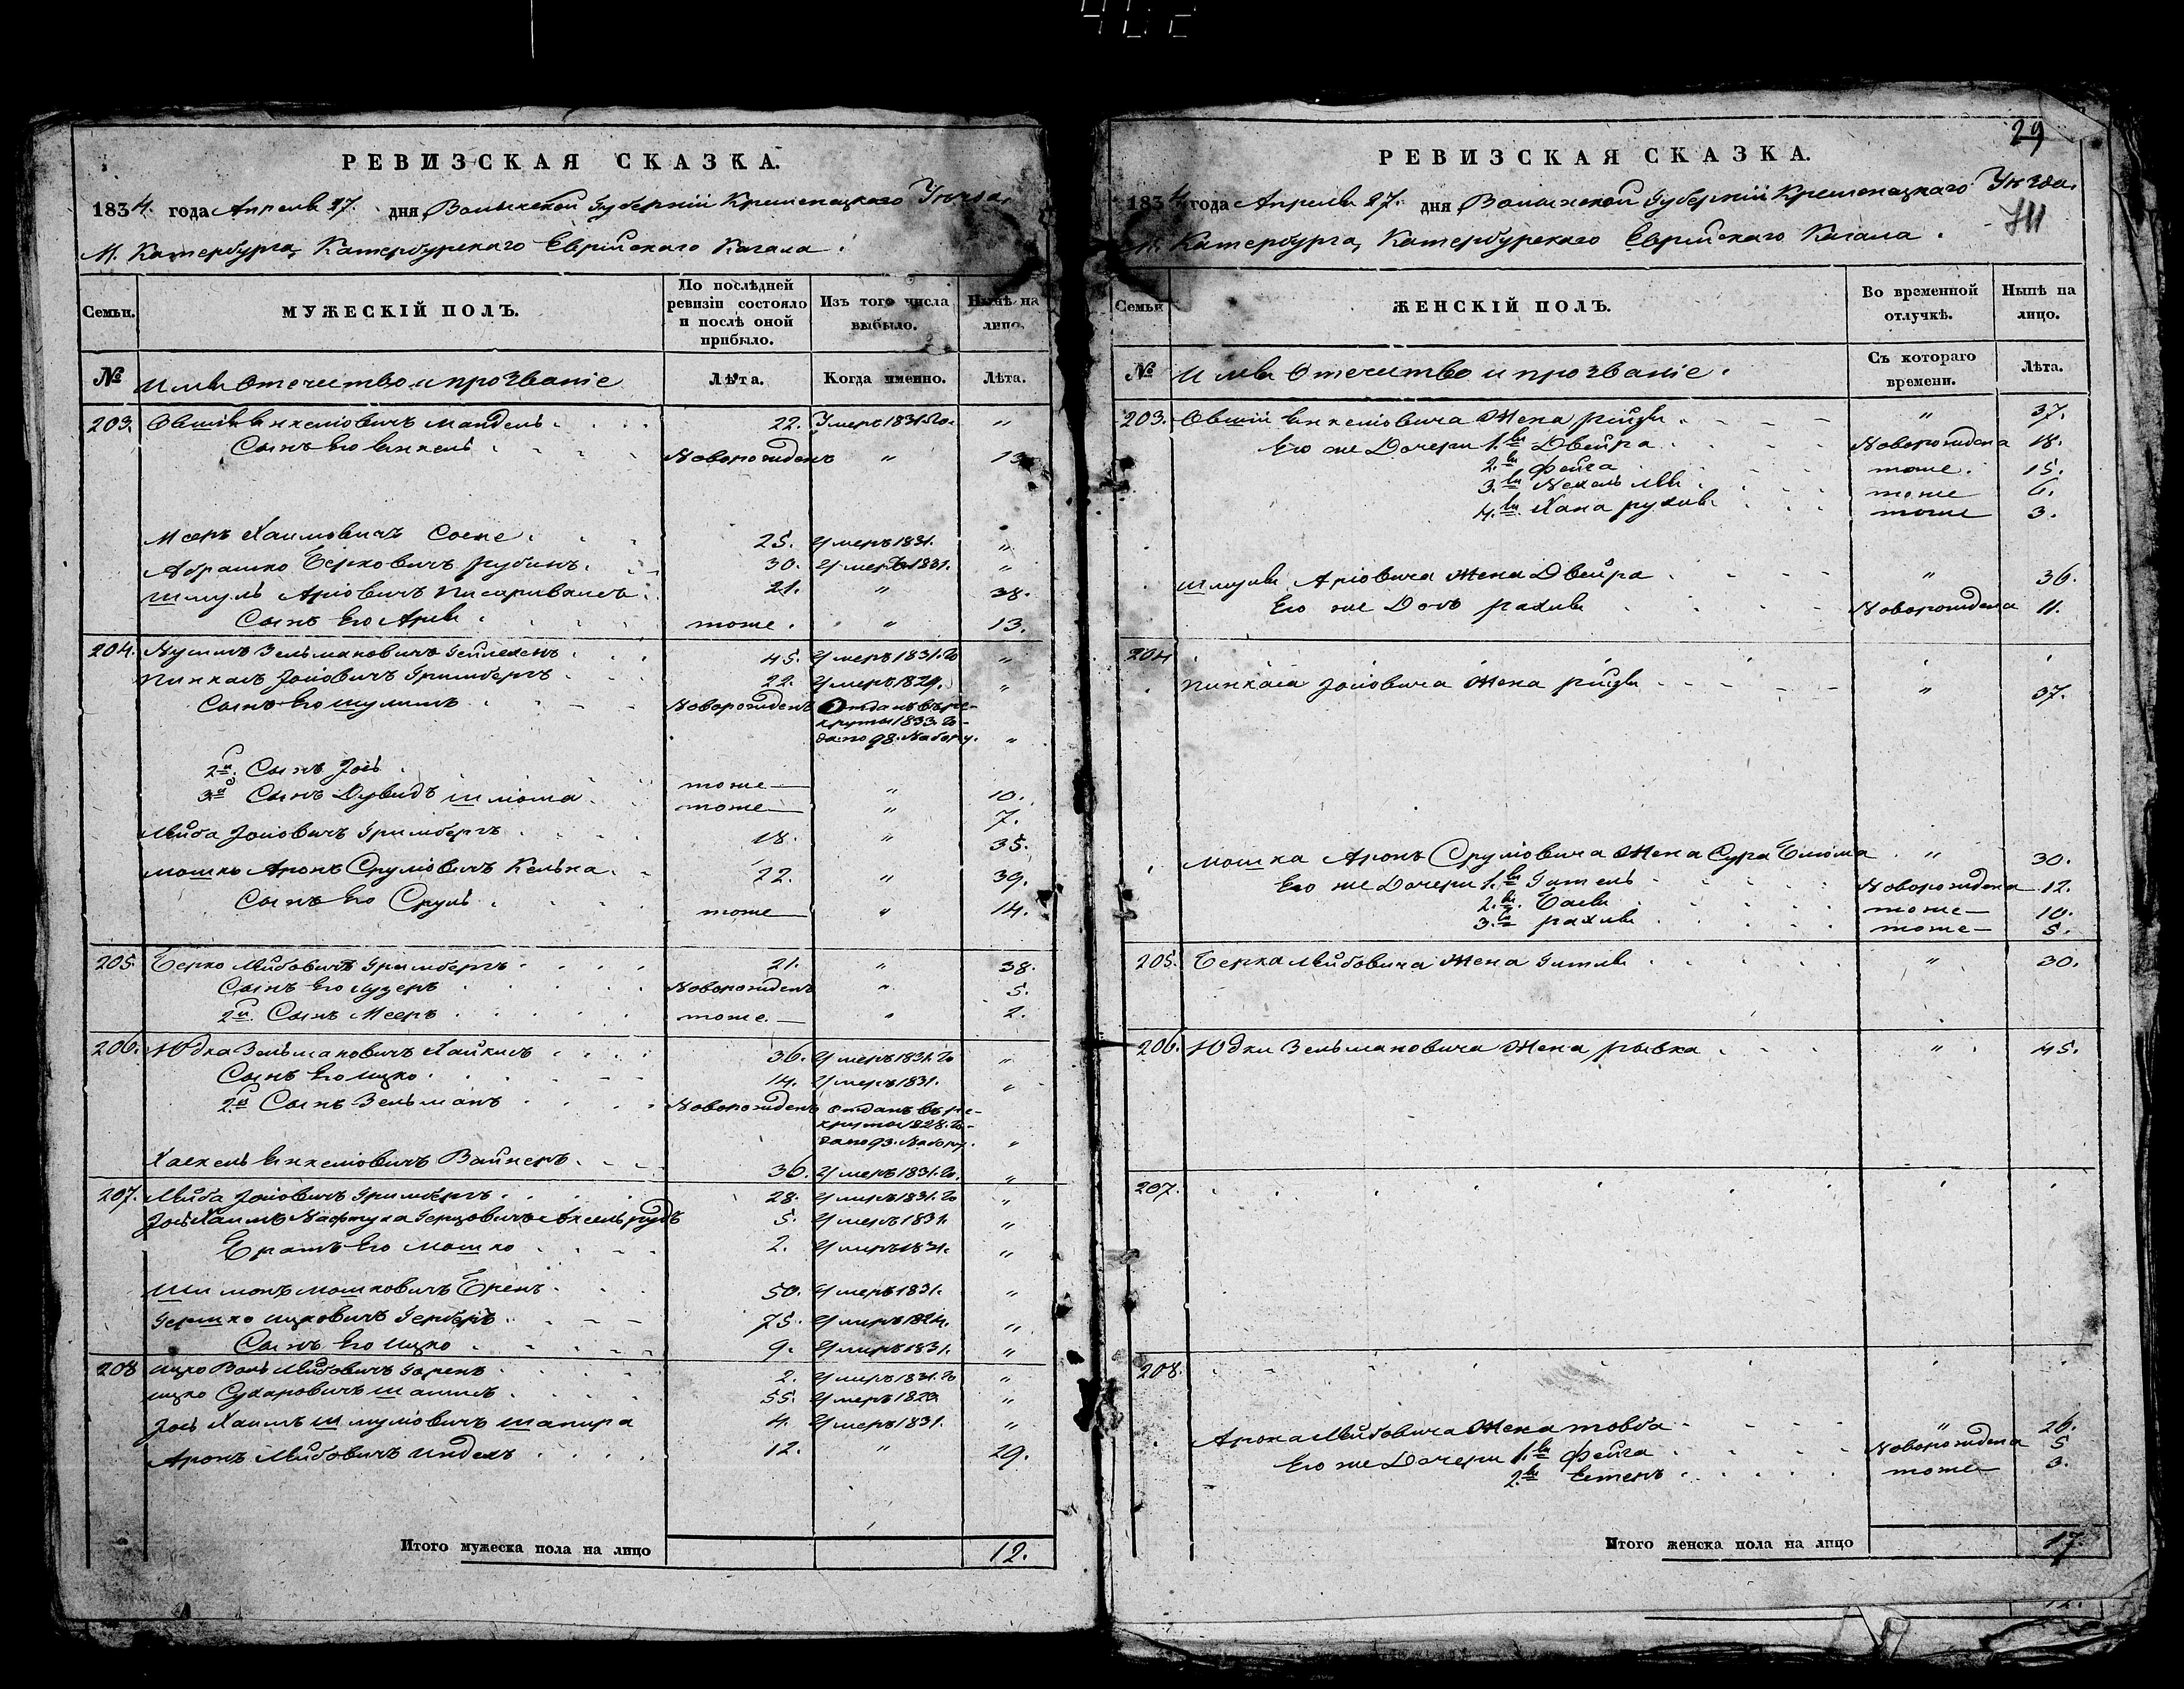 РЕВИЗСКАЯ СКАЗКА.
1834 года Апреля 27. дня Волынской Губерніи Кременецкаго Уѣзда,
М. Катербурга, Катербурскаго Еврейскаго Кагала.
Семьи.
МУЖЕСКІЙ ПОЛЪ.
По послѣдней ревизіи состояло и послѣ оной прибыло.
Изъ того числа выбыло.
Нынѣ на лицо.
№
Имя Отечество и прозваніе
Лѣта.
Когда именно.
Лѣта.
203. Овшій Янкеліовичъ Мандель 22. Умеръ 1831. го „
Сынъ Его Янкель Новорожденъ „ 13
Мееръ Хаимовичъ 25. Умеръ 1831. „
Абрашко Берковичъ Рубинъ 30. Умеръ 1831. „
Шмуль Аріовичъ 21. „ 38.
Сынъ Его Арія тоже „ 13.
204. Нусимъ Зельмановичъ 45. Умеръ 1831. го „
Пинкасъ Іосіовичъ Гримбергъ 22. Умеръ 1829. „
Сынъ Его Шулимъ Новорожденъ Отданъ въ ре-
круты 1833. го-
да по 98. Набору. „
2й Сынъ Іось тоже „ 10.
3й Сынъ Дувидъ Шліома тоже „ 7.
Лейба Іосіовичъ Гримбергъ 18. „ 35.
Мошко Аронъ Сруліовичъ 22. „ 39.
Сынъ Его Сруль тоже „ 14.
205. Берко Лейбовичъ Гримбергъ 21. „ 38.
Сынъ Его Лузеръ Новорожденъ „ 5.
2й Сынъ Мееръ тоже „ 2.
206. Юдка Зельмановичъ Хайкисъ 36. Умеръ 1831. го „
Сынъ Его Ицко 14. Умеръ 1831. „
2й Сынъ Зельманъ Новорожденъ отданъ въ ре-
круты 1828. го-
да по 93. Набору. „
Хаскель Янкеліовичъ Вайнеръ 36. Умеръ 1831. го „
207. Лейба Іосіовичъ Гримбергъ 28. Умеръ 1831. го „
Іось Хаимъ Нафтула Герцовичъ Аксельрудъ 5. Умеръ 1831. „
Братъ Его Мошко 2. Умеръ 1831. „
Шимонъ Мошковичъ 50. Умеръ 1831. „
Гершко Ицковичъ 75. Умеръ 1824. „
Сынъ Его Ицко 9. Умеръ 1831. „
208 Ицко Лейбовичъ 2. Умеръ 1831. го „
Ицко 55. Умеръ „
Іось Хаимъ Шмуліовичъ Шапира 4. Умеръ 1831. „
Аронъ Лейбовичъ 12. „ 29.
Итого мужеска пола на лицо 12.
29
РЕВИЗСКАЯ СКАЗКА.
1834 года Апреля 27. дня Волынской Губерніи Кременецкаго Уѣзда,
М. Катербурга, Катербурскаго Еврейскаго Кагала.
Семьи
ЖЕНСКІЙ ПОЛЪ.
Во временной отлучкѣ.
Нынѣ на лицо.
№
Имя Отечество и прозваніе.
Съ котораго времени.
Лѣта.
203. Овшіи Янкеліовича Жена Рейзя „ 37.
Его же Дочери 1.я Двейра Новорождена 18.
2.я Фейга тоже 15.
3.я тоже 6.
4.я Хана Рухля тоже 3.
Шмуля Аріовича Жена Двейра „ 36.
Его же Дочь Рахиля Новорождена 11.
204
Пинкаса Іосіовича Жена Рейзя „ 37.
Мошка Аронъ Сруліовича Жена Сура Блюма „ 30.
Его же Дочери 1.я Гитель Новорождена 12.
2.я Бася тоже 10.
3.я Рахиля тоже 5.
205. Берка Лейбовича Жена Гитля „ 30.
206. Юдки Зельмановича Жена Рывка „ 45.
207.
208.
Арона Лейбовича Жена Товба „ 26.
Его же Дочери 1.я Фейга Новорождена 5
2.я тоже 3.
Итого женска пола на лицо 17.